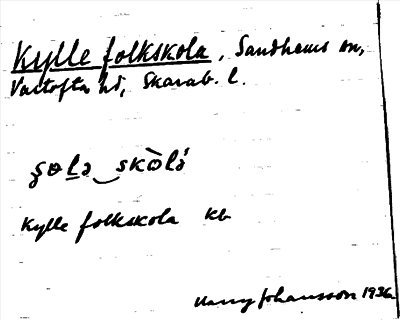 Kylle folkskola, Sandhems sn,
Vartofta hd, Skarab. l.
Kylle folkskola kb
Harry Johansson 1936